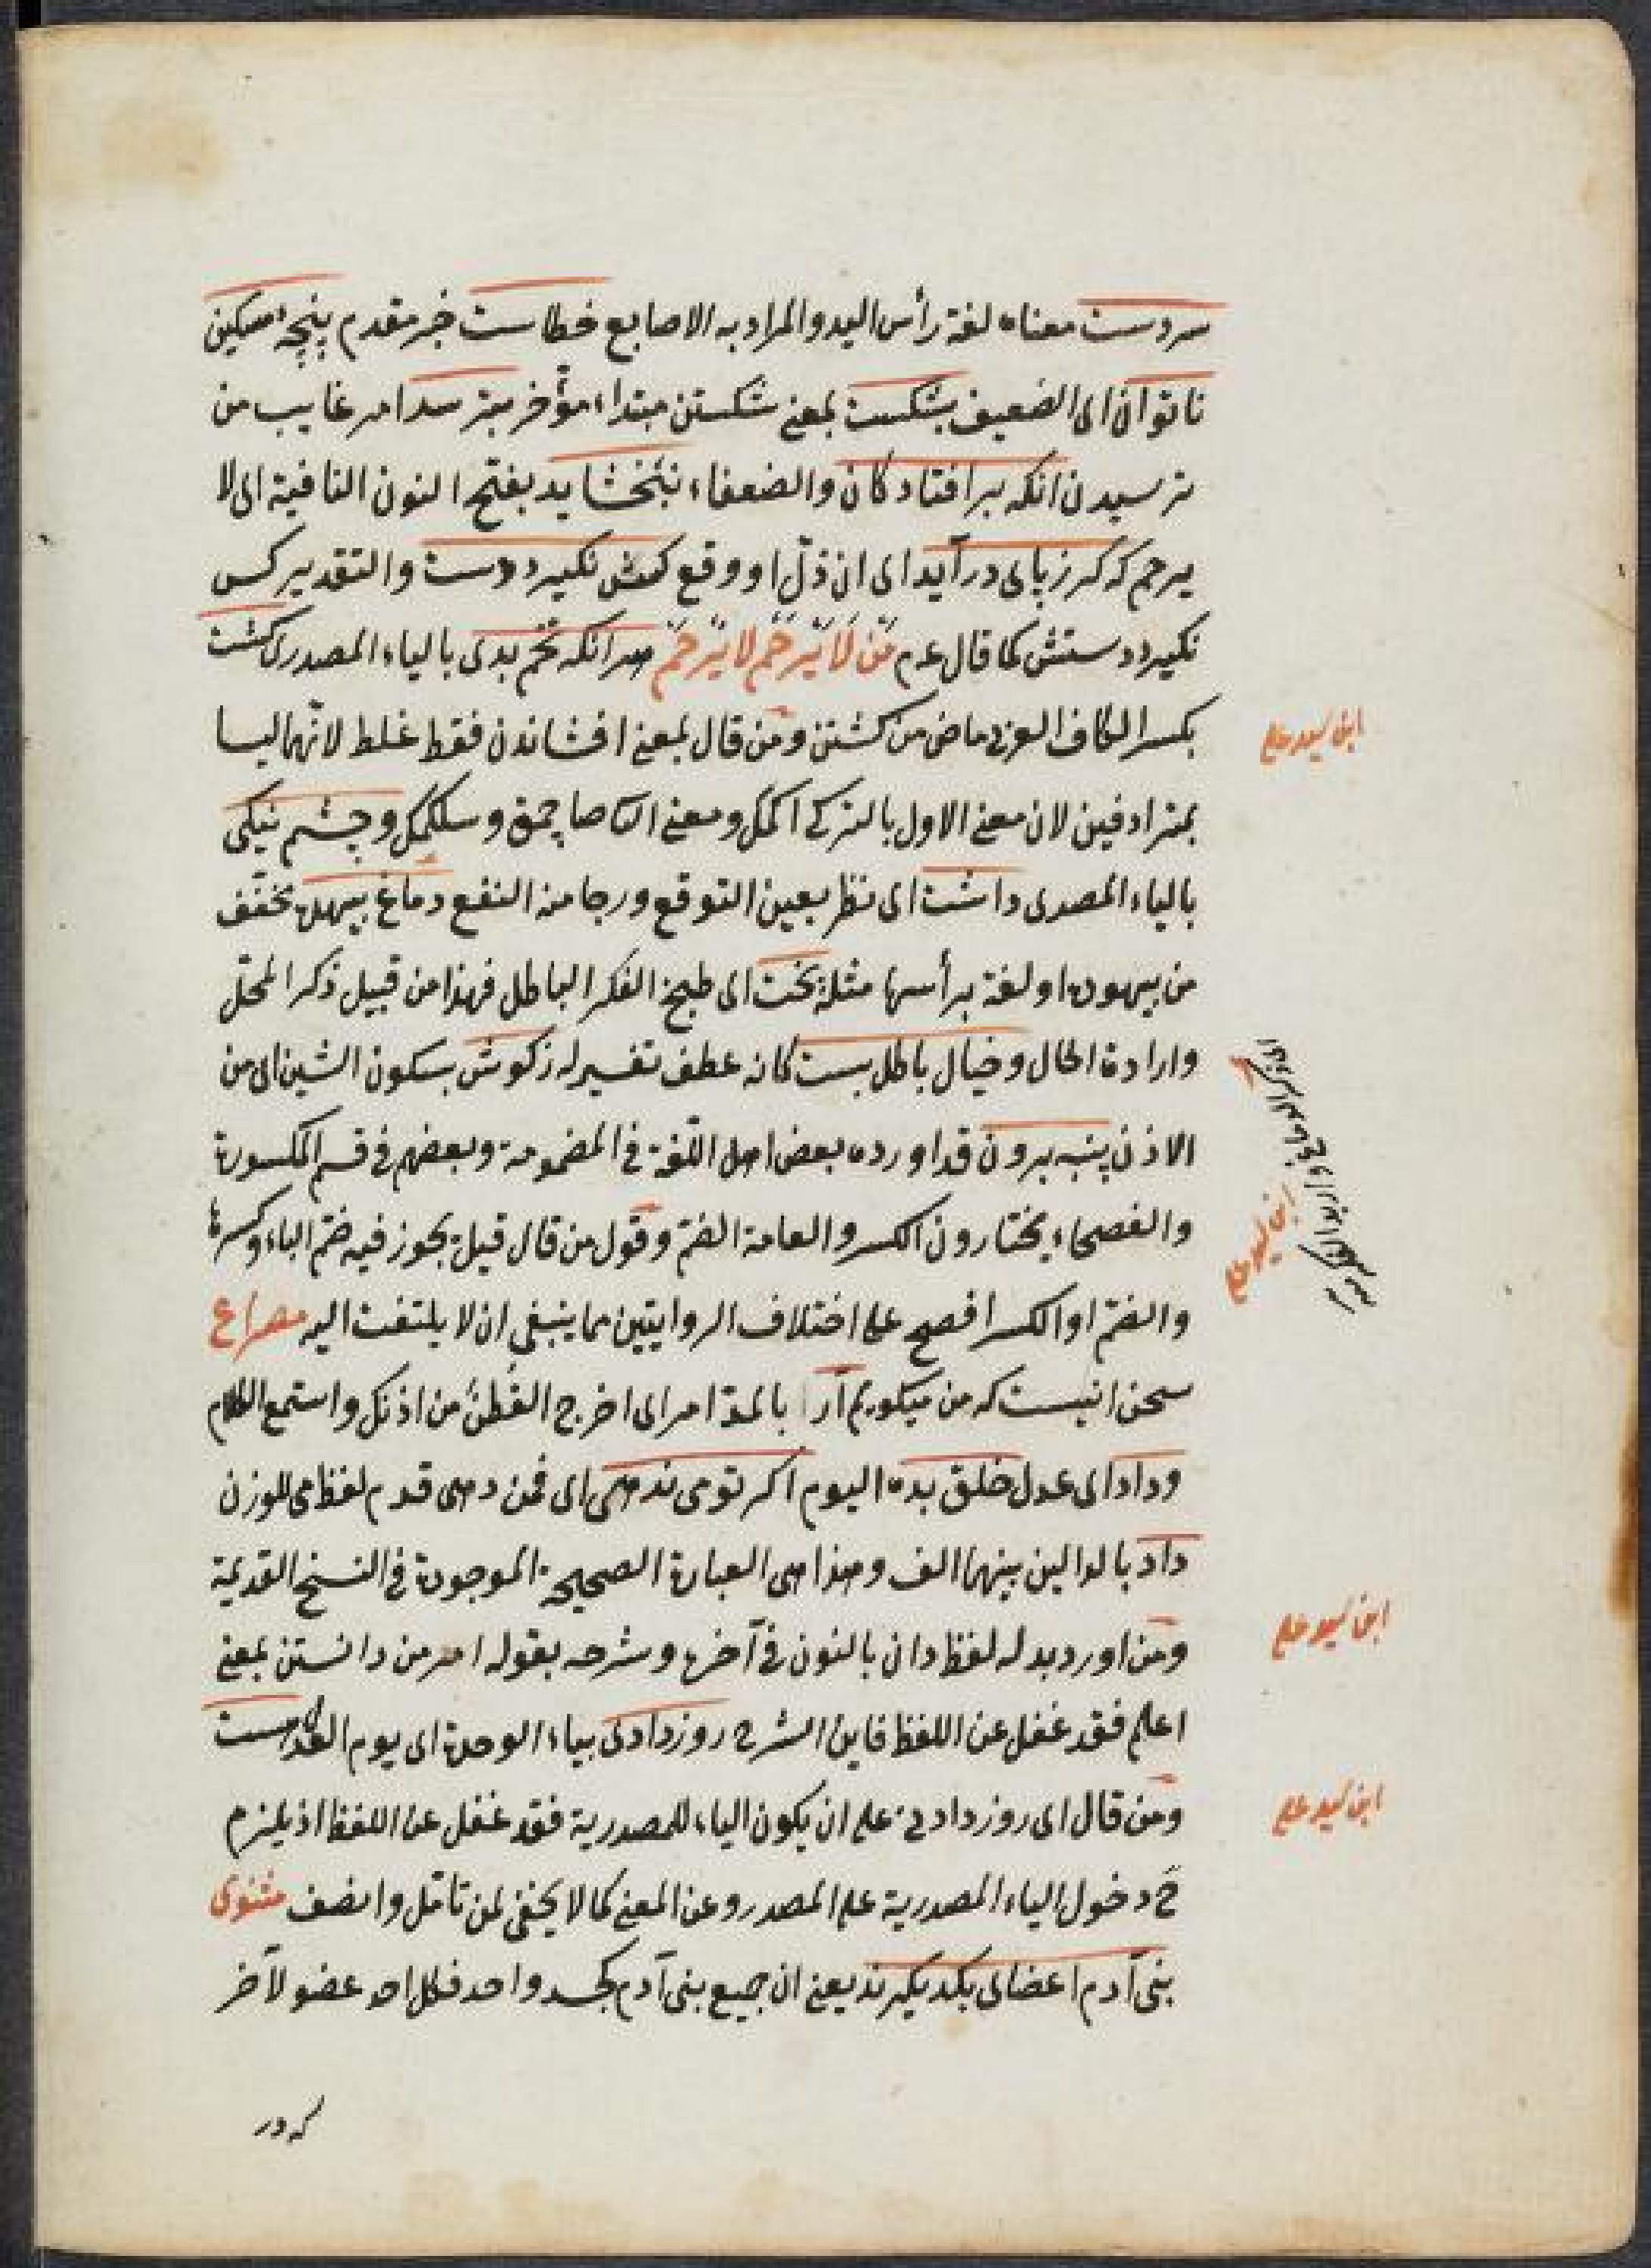 سر دست معناه لغة رأس اليد والمراد به الاصابع خطاست خبر مقدم پنجهٔ مسكين
ناتوان اى الضعيف بشكست بمعنى شكستن مبتداء مؤخر بترسد امر غايب من
ترسيدن انكه بر افتادكان والضعفاء نبخشايد بفتح النون النافية اى لا
يرحم كه كر ز پاى در آيد اى ان ذلّ او وقع كسش نكيرد دست والتقدير كس
نكيرد دستش كما قال عم مَنْ لَا يَرْحَم لا يُرحَم هر انكه تخم بدى بالياء المصدرى كشت
بكسر الكاف العربى ماض من كشتن ومن قال بمعنى افشاندن فقط غلط لانهما ليسا
بمترادفين لان معنى الاول بالتركى اكمك ومعنى الثانى صاچمق وسلكمك وچشم نيكى
بالياء المصدرى داشت اى نظر بعين التوقع ورجا منه النفع دماغ بيهده مخفف
من بيهوده او لغة برأسها مثله پخت اى طبخ الفكر الباطل فهذا من قبيل ذكر المحلّ
وارادة الحال وخيال باطل بست كانه عطف تفسير له زكوش بسكون الشين اى من
الاذن پنبه برون قد اورده بعض اهل اللغة فى المضمومة وبعضهم فى قسم المكسورة
والفصحاء يختارون الكسر والعامة الضم وقول من قال قيل يجوز فيه ضم الباء وكسرها
والضم او الكسر افصح على اختلاف الروايتين مما ينبغى ان لا يلتفت اليه مصراع
سخن انيست كه من ميكويم آر بالمد امر اى اخرج القطن من اذنك واستمع الكلام
وداد اى عدل خلق بده اليوم اكر تو مى ندهى اى فمن دهى قدم لفظ مى للوزن
داد بالدالين بينهما الف وهذا هى العبارة الصحيحة الموجودة فى النسخ القديمة
ومن اورد بدله لفظ دان بالنون فى آخره وشرحه بقوله امر من دانستن بمعنى
اعلم فقد غفل عن اللفظ فاين الشرح روز دادى بياء الوحدة اى يوم العدل هست
ومن قال اى روز دادى على ان يكون الياء للمصدرية فقد غفل عن اللفظ اذ يلزم
ح دخول الياء المصدرية على المصدر وعن المعنى كما لا يخفى لمن تأمل وانصف مثنوى
بنى آدم اعضاى يكديكرند يعنى ان جميع بنى آدم كجسد واحد فكل احد عضو لآخر
كه در
ابن سيد على
اى ذكر الدماغ واريد الفكر
ابن سيد على
ابن سيد على
ابن سيد على